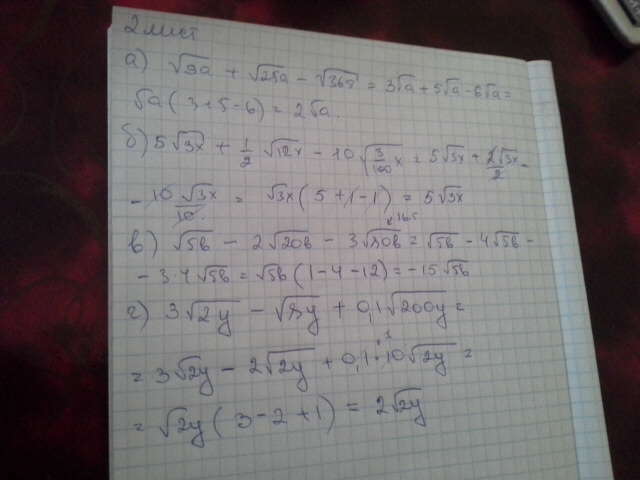 2 лист
а) √9a + √25a − √36a = 3√a + 5√a − 6√a =
√a ( 3 + 5 − 6 ) = 2√a.
б) 5√3x + 1/2 √12x − 10√(3/100 x) = 5√3x + 2√3x/2 −
− 10√3x/10 = √3x ( 5 + 1 − 1 ) = 5√3x
в) √5b − 2√20b − 3√80b = √5b − 4√5b −
− 3·4√5b = √5b ( 1 − 4 − 12 ) = −15√5b
г) 3√2y − √8y + 0,1√200y =
= 3√2y − 2√2y + 0,1·10√2y =
= √2y ( 3 − 2 + 1 ) = 2√2y